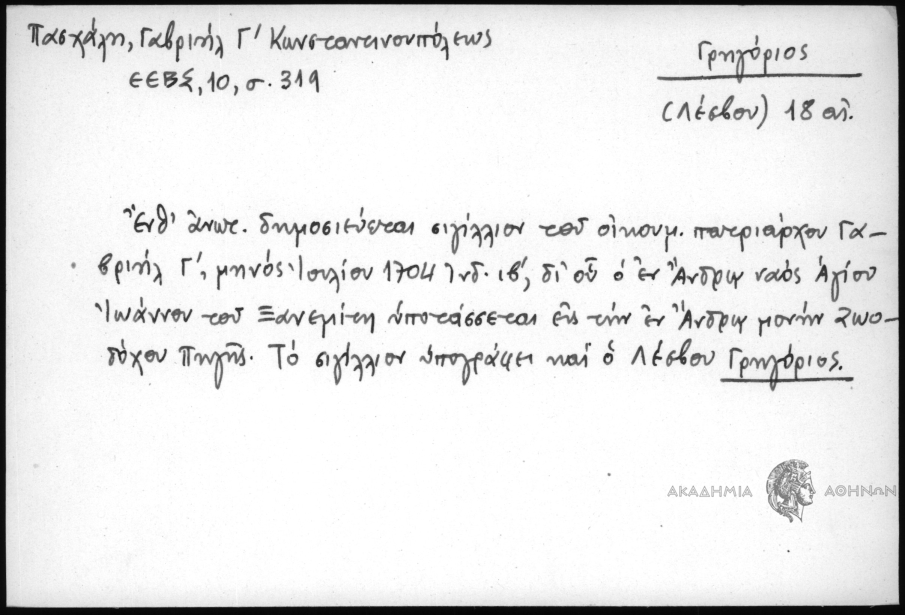 Πασχάλη, Γαβριήλ Γ' Κωνσταντινουπόλεως
ΕΕΒΣ, 10, σ. 319
Γρηγόριος
(Λέσβου) 18 αἰ.
Ἔνθ' ἀνωτ. δημοσιεύεται σιγίλλιον τοῦ οἰκουμ. πατριάρχου Γα-
βριήλ Γ', μηνός Ἰουλίου 1704 ἰνδ. ιβ', δι' οὗ ὁ ἐν Ἄνδρῳ ναός Ἁγίου
Ἰωάννου τοῦ Ξανεμίτη ὑποτάσσεται εἰς τήν ἐν Ἄνδρῳ μονήν Ζωο-
δόχου Πηγῆς. Τό σιγίλλιον ὑπογράφει καί ὁ Λέσβου Γρηγόριος.
ΑΚΑΔΗΜΙΑ ΑΘΗΝΩΝ